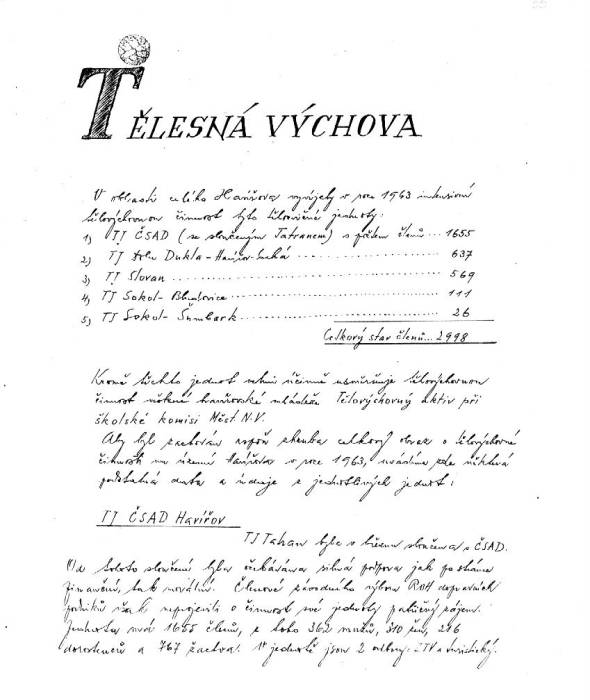 TĚLESNÁ VÝCHOVA
V oblasti celého Havířova vyvíjely v roce 1963 intensivní
tělovýchovnou činnost tyto tělovýchovné jednoty:
1) TJ ČSAD (se sloučeným Tatranem) s počtem členů ... 1655
2) TJ Dukla-Havířov-Suchá ... 637
3) TJ Slovan ... 569
4) TJ Sokol-Bludovice ... 111
5) TJ Sokol-Šumbark ... 26
Celkový stav členů... 2998
Kromě těchto jednot velmi účinně usměrňuje tělovýchovnou
činnost havířovské mládeže Tělovýchovný aktiv při
školské komisi Měst. N.V.
Aby byl zachován aspoň zhruba celkový obraz o tělovýchovné
činnosti na území Havířova v roce 1963, uvádíme zde některá
podstatná data a údaje z jednotlivých jednot:
TJ ČSAD Havířov
TJ Tatran byla v březnu sloučena s ČSAD.
Od tohoto sloučení byla očekávána silná podpora jak po stránce
finanční, tak morální. Členové závodního výboru ROH dopravních
podniků však neprojevili o činnost své jednoty patřičný zájem.
Jednota má 1655 členů, z toho 362 mužů, 310 žen, 216
dorostenců a 767 žactva. V jednotě jsou 2 odbory: ZTV a turistický.